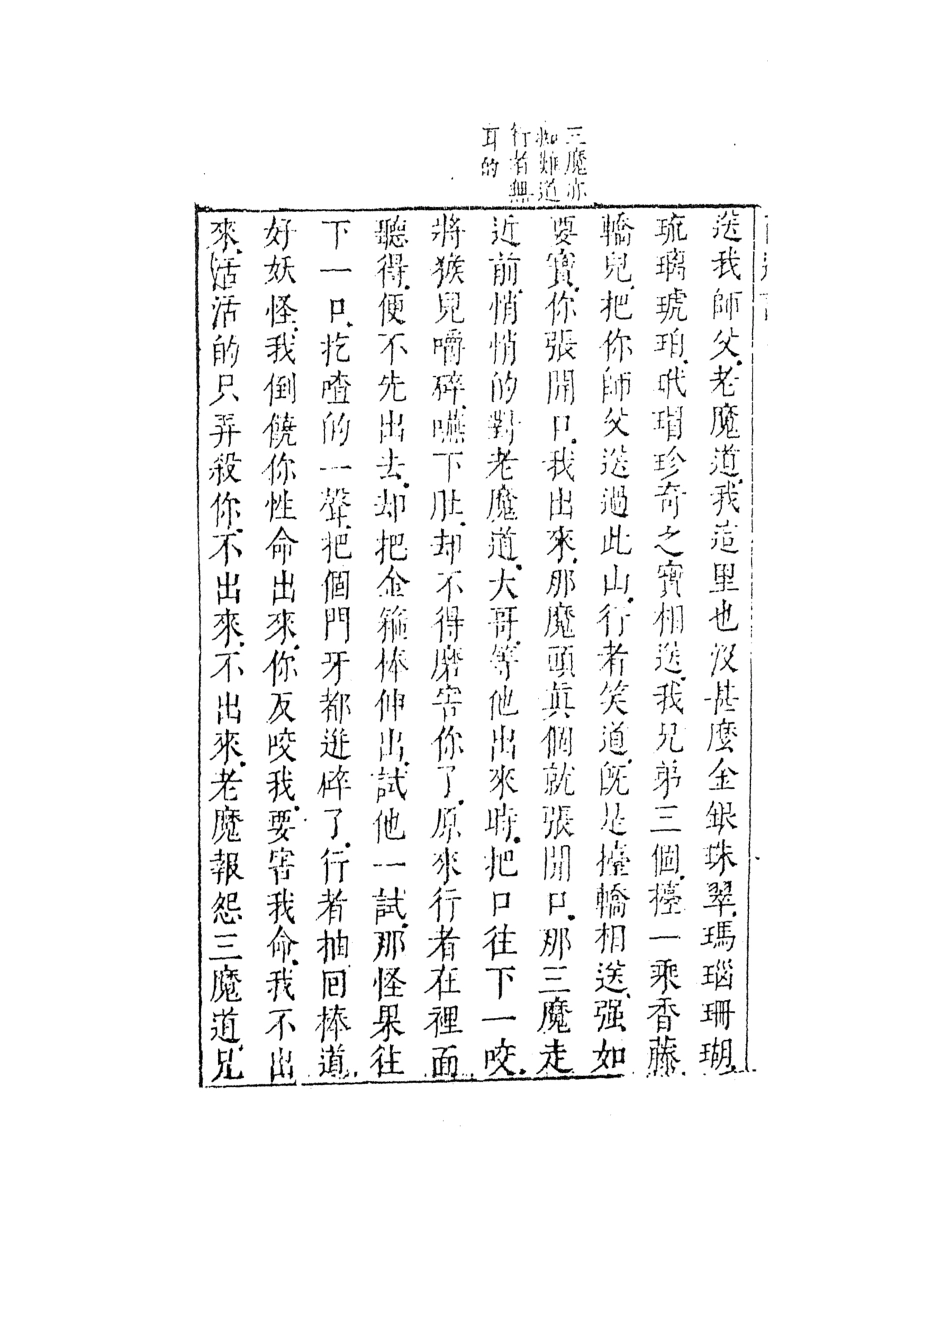 三魔亦
痴難道
行者無
耳的
送我師父老魔道我這里也沒甚麼金銀珠翠瑪瑙珊瑚
琉璃琥珀玳瑁珍奇之寶相送我兄弟三個擡一乘香藤
轎兒把你師父送過此山行者笑道既是擡轎相送强如
要寶你張開口我出來那魔頭真個就張開口那三魔走
近前悄悄的對老魔道大哥等他出來時把口往下一咬
將猴兒嚼碎嚥下肚却不得磨害你了原來行者在裡面
聽得便不先出去却把金箍棒伸出試他一試那怪果往
下一口扢喳的一聲把個門牙都迸碎了行者抽回棒道
好妖怪我倒饒你性命出來你反咬我要害我命我不出
來活活的只弄殺你不出來不出來老魔報怨三魔道兄